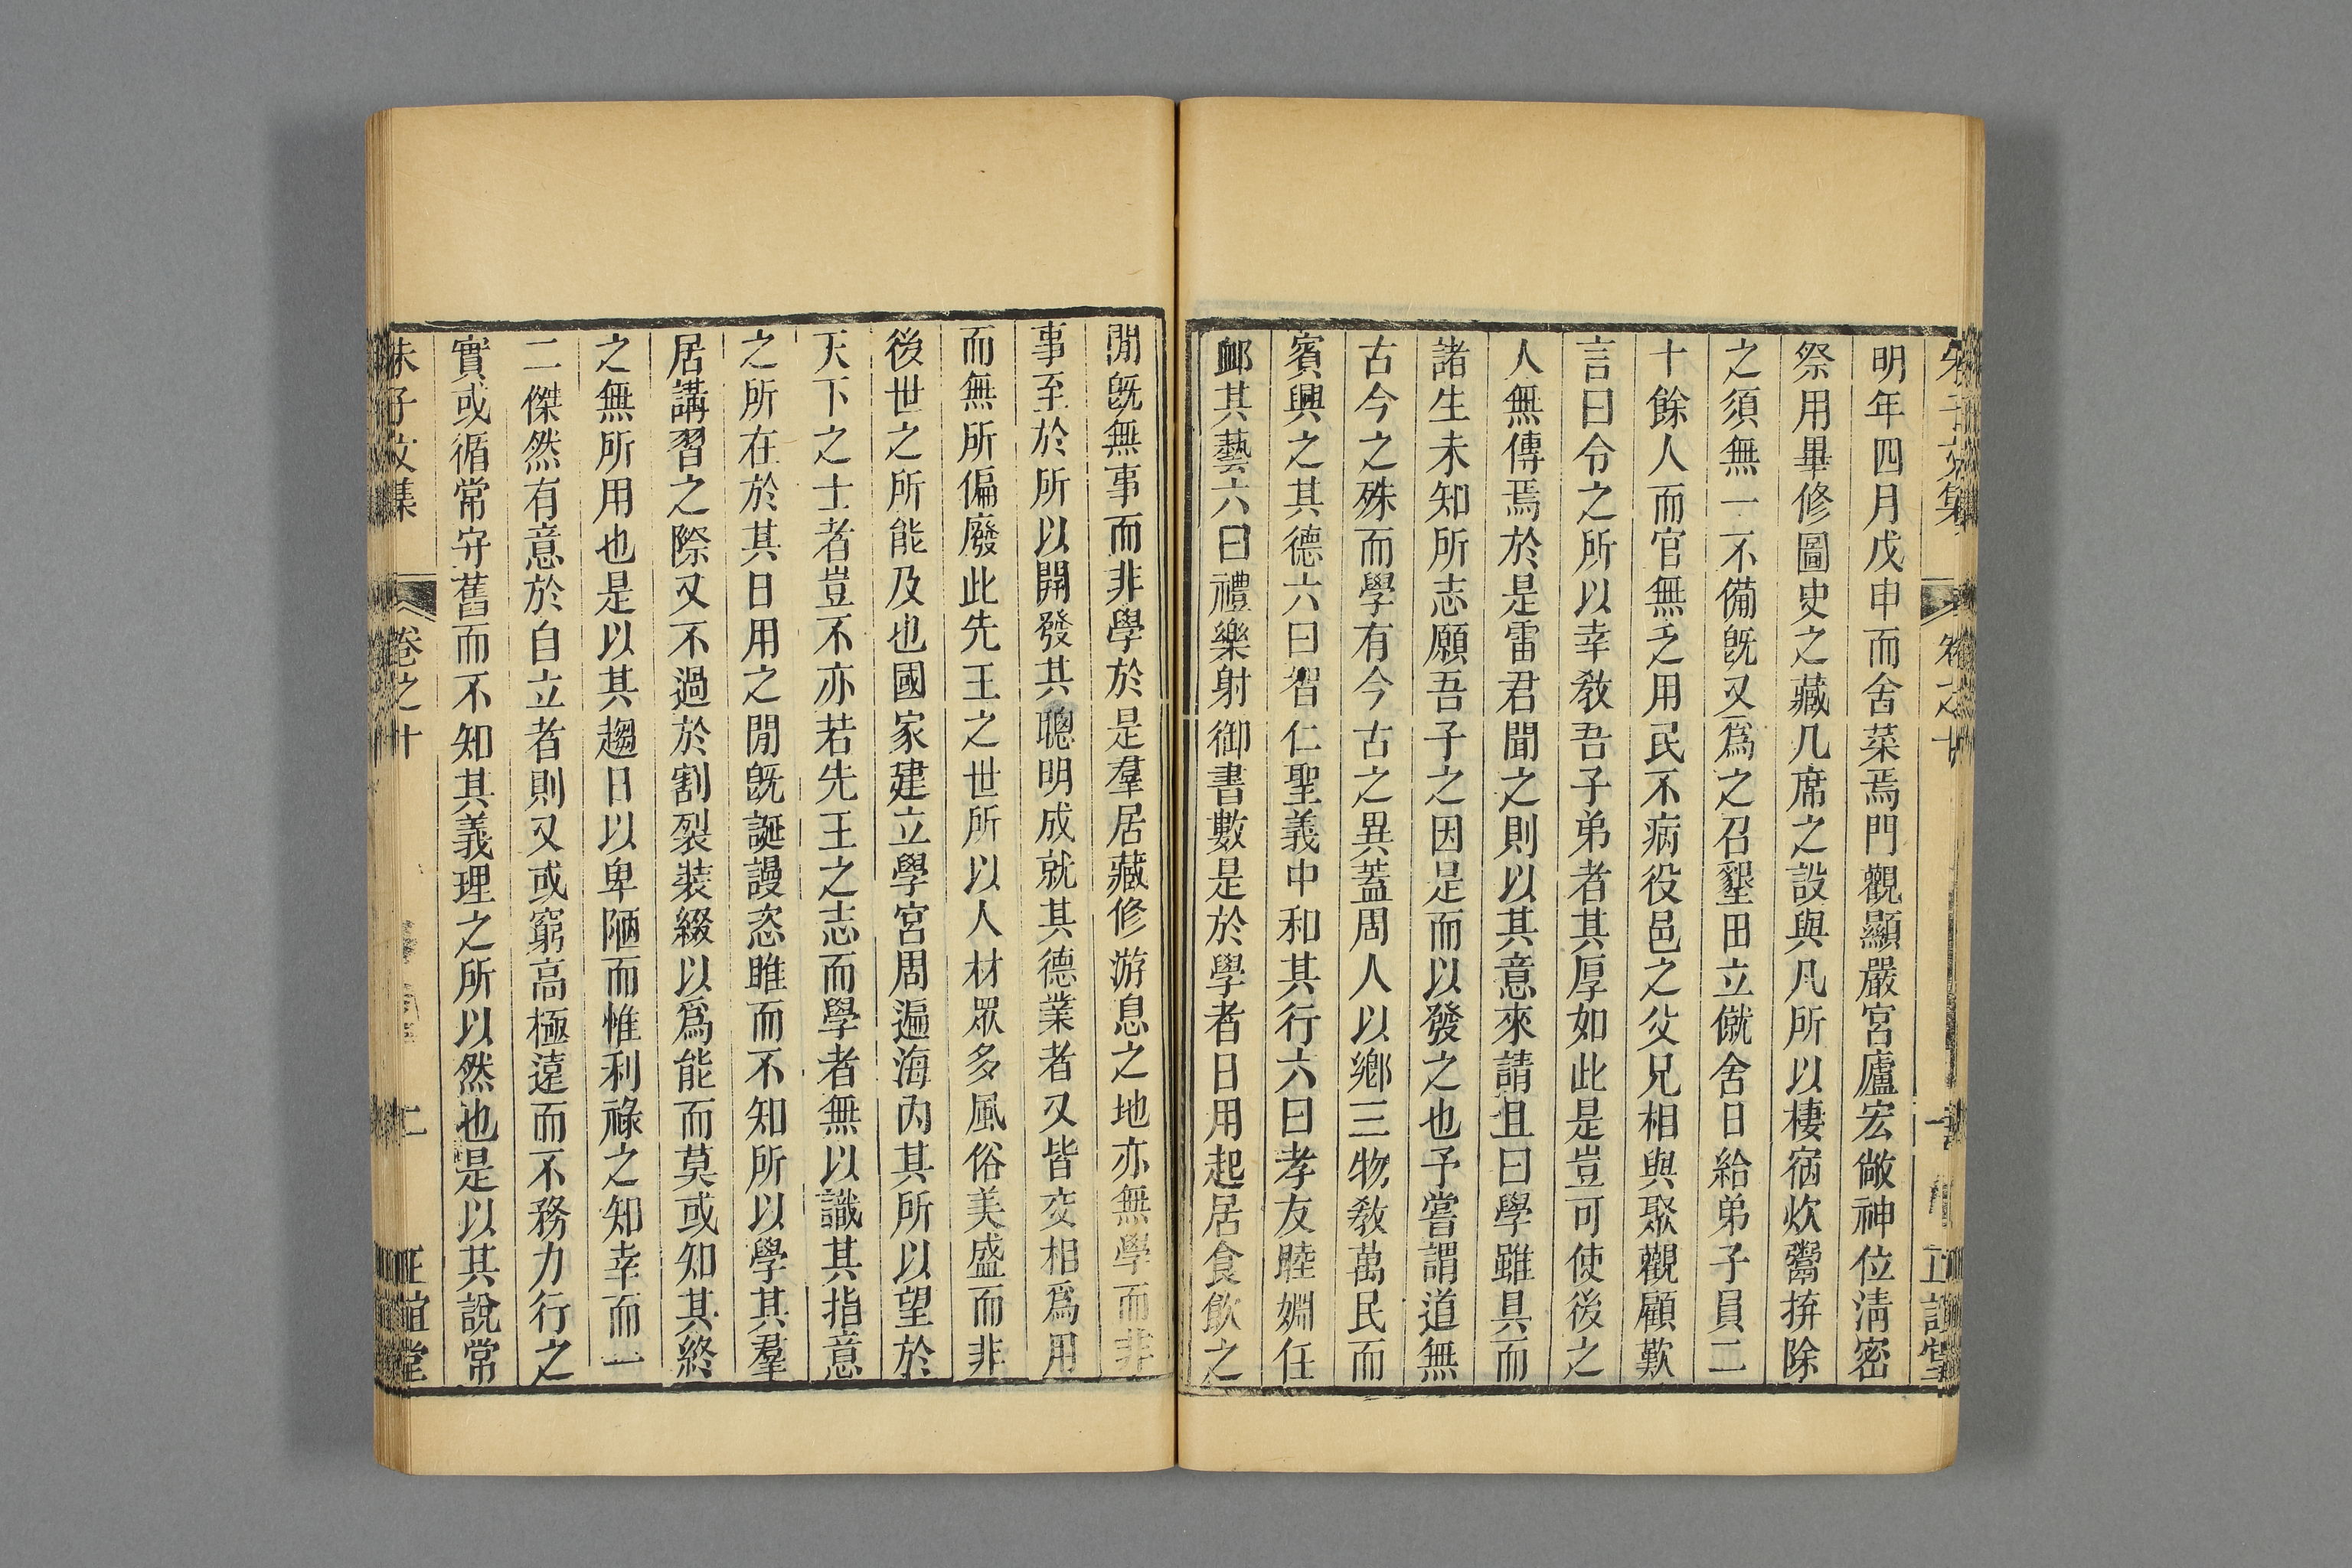 朱子文集 卷之十 一 正誼堂
明年四月戊申而舍菜焉門觀顯嚴宮廬宏敞神位淸密
祭用畢修圖史之藏几席之設與凡所以棲宿炊鬻拚除
之須無一不備旣又爲之召墾田立僦舍日給弟子員二
十餘人而官無乏用民不病役邑之父兄相與聚觀顧歎
言曰令之所以幸敎吾子弟者其厚如此是豈可使後之
人無傳焉於是雷君聞之則以其意來請且曰學雖具而
諸生未知所志願吾子之因是而以發之也予嘗謂道無
古今之殊而學有今古之異蓋周人以鄉三物敎萬民而
賓興之其德六曰智仁聖義中和其行六曰孝友睦婣任
䘏其藝六曰禮樂射御書數是於學者日用起居食飮之
閒旣無事而非學於是羣居藏修游息之地亦無學而非
事至於所以開發其聰明成就其德業者又皆交相爲用
而無所偏廢此先王之世所以人材眾多風俗美盛而非
後世之所能及也國家建立學宮周遍海內其所以望於
天下之士者豈不亦若先王之志而學者無以識其指意
之所在於其日用之閒旣誕謾恣睢而不知所以學其羣
居講習之際又不過於割裂裝綴以爲能而莫或知其終
之無所用也是以其趨日以卑陋而惟利祿之知幸而一
二傑然有意於自立者則又或窮高極遠而不務力行之
實或循常守舊而不知其義理之所以然也是以其說常
朱子文集 卷之十 二 正誼堂